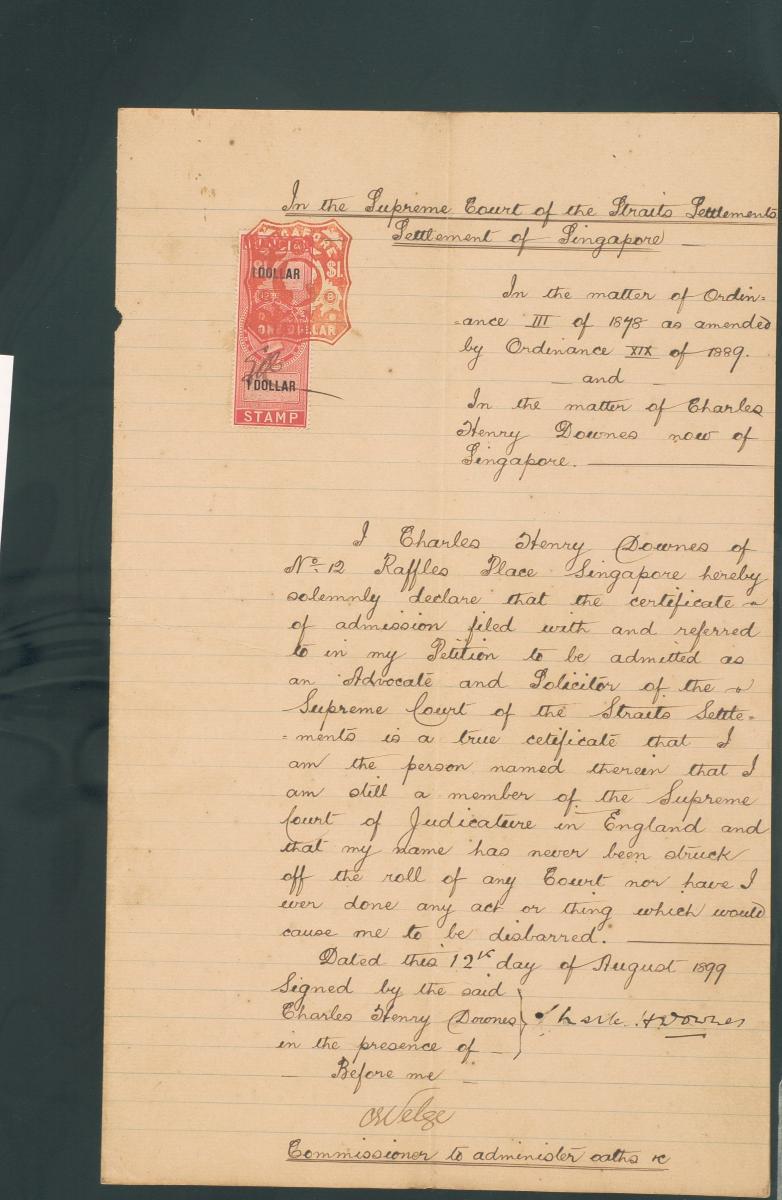 In the Supreme Court of the Straits Settlements
Settlement of Singapore
SINGAPORE
1 DOLLAR $1
ONE DOLLAR
1 DOLLAR
STAMP
In the matter of Ordin=
=ance III of 1878 as amended
by Ordinance XIX of 1889.
— and —
In the matter of Charles
Henry Downes now of
Singapore.
I Charles Henry Downes of
No. 12 Raffles Place Singapore hereby
solemnly declare that the certificate
of admission filed with and referred
to in my Petition to be admitted as
an Advocate and Solicitor of the
Supreme Court of the Straits Settle=
=ments is a true cetificate that I
am the person named therein that I
am still a member of the Supreme
Court of Judicature in England and
that my name has never been struck
off the roll of any Court nor have I
ever done any act or thing which would
cause me to be disbarred.
Dated this 12th day of August 1899
Signed by the said
Charles Henry Downes } Charles H Downes
in the presence of —
— Before me —
Commissioner to administer oaths &c